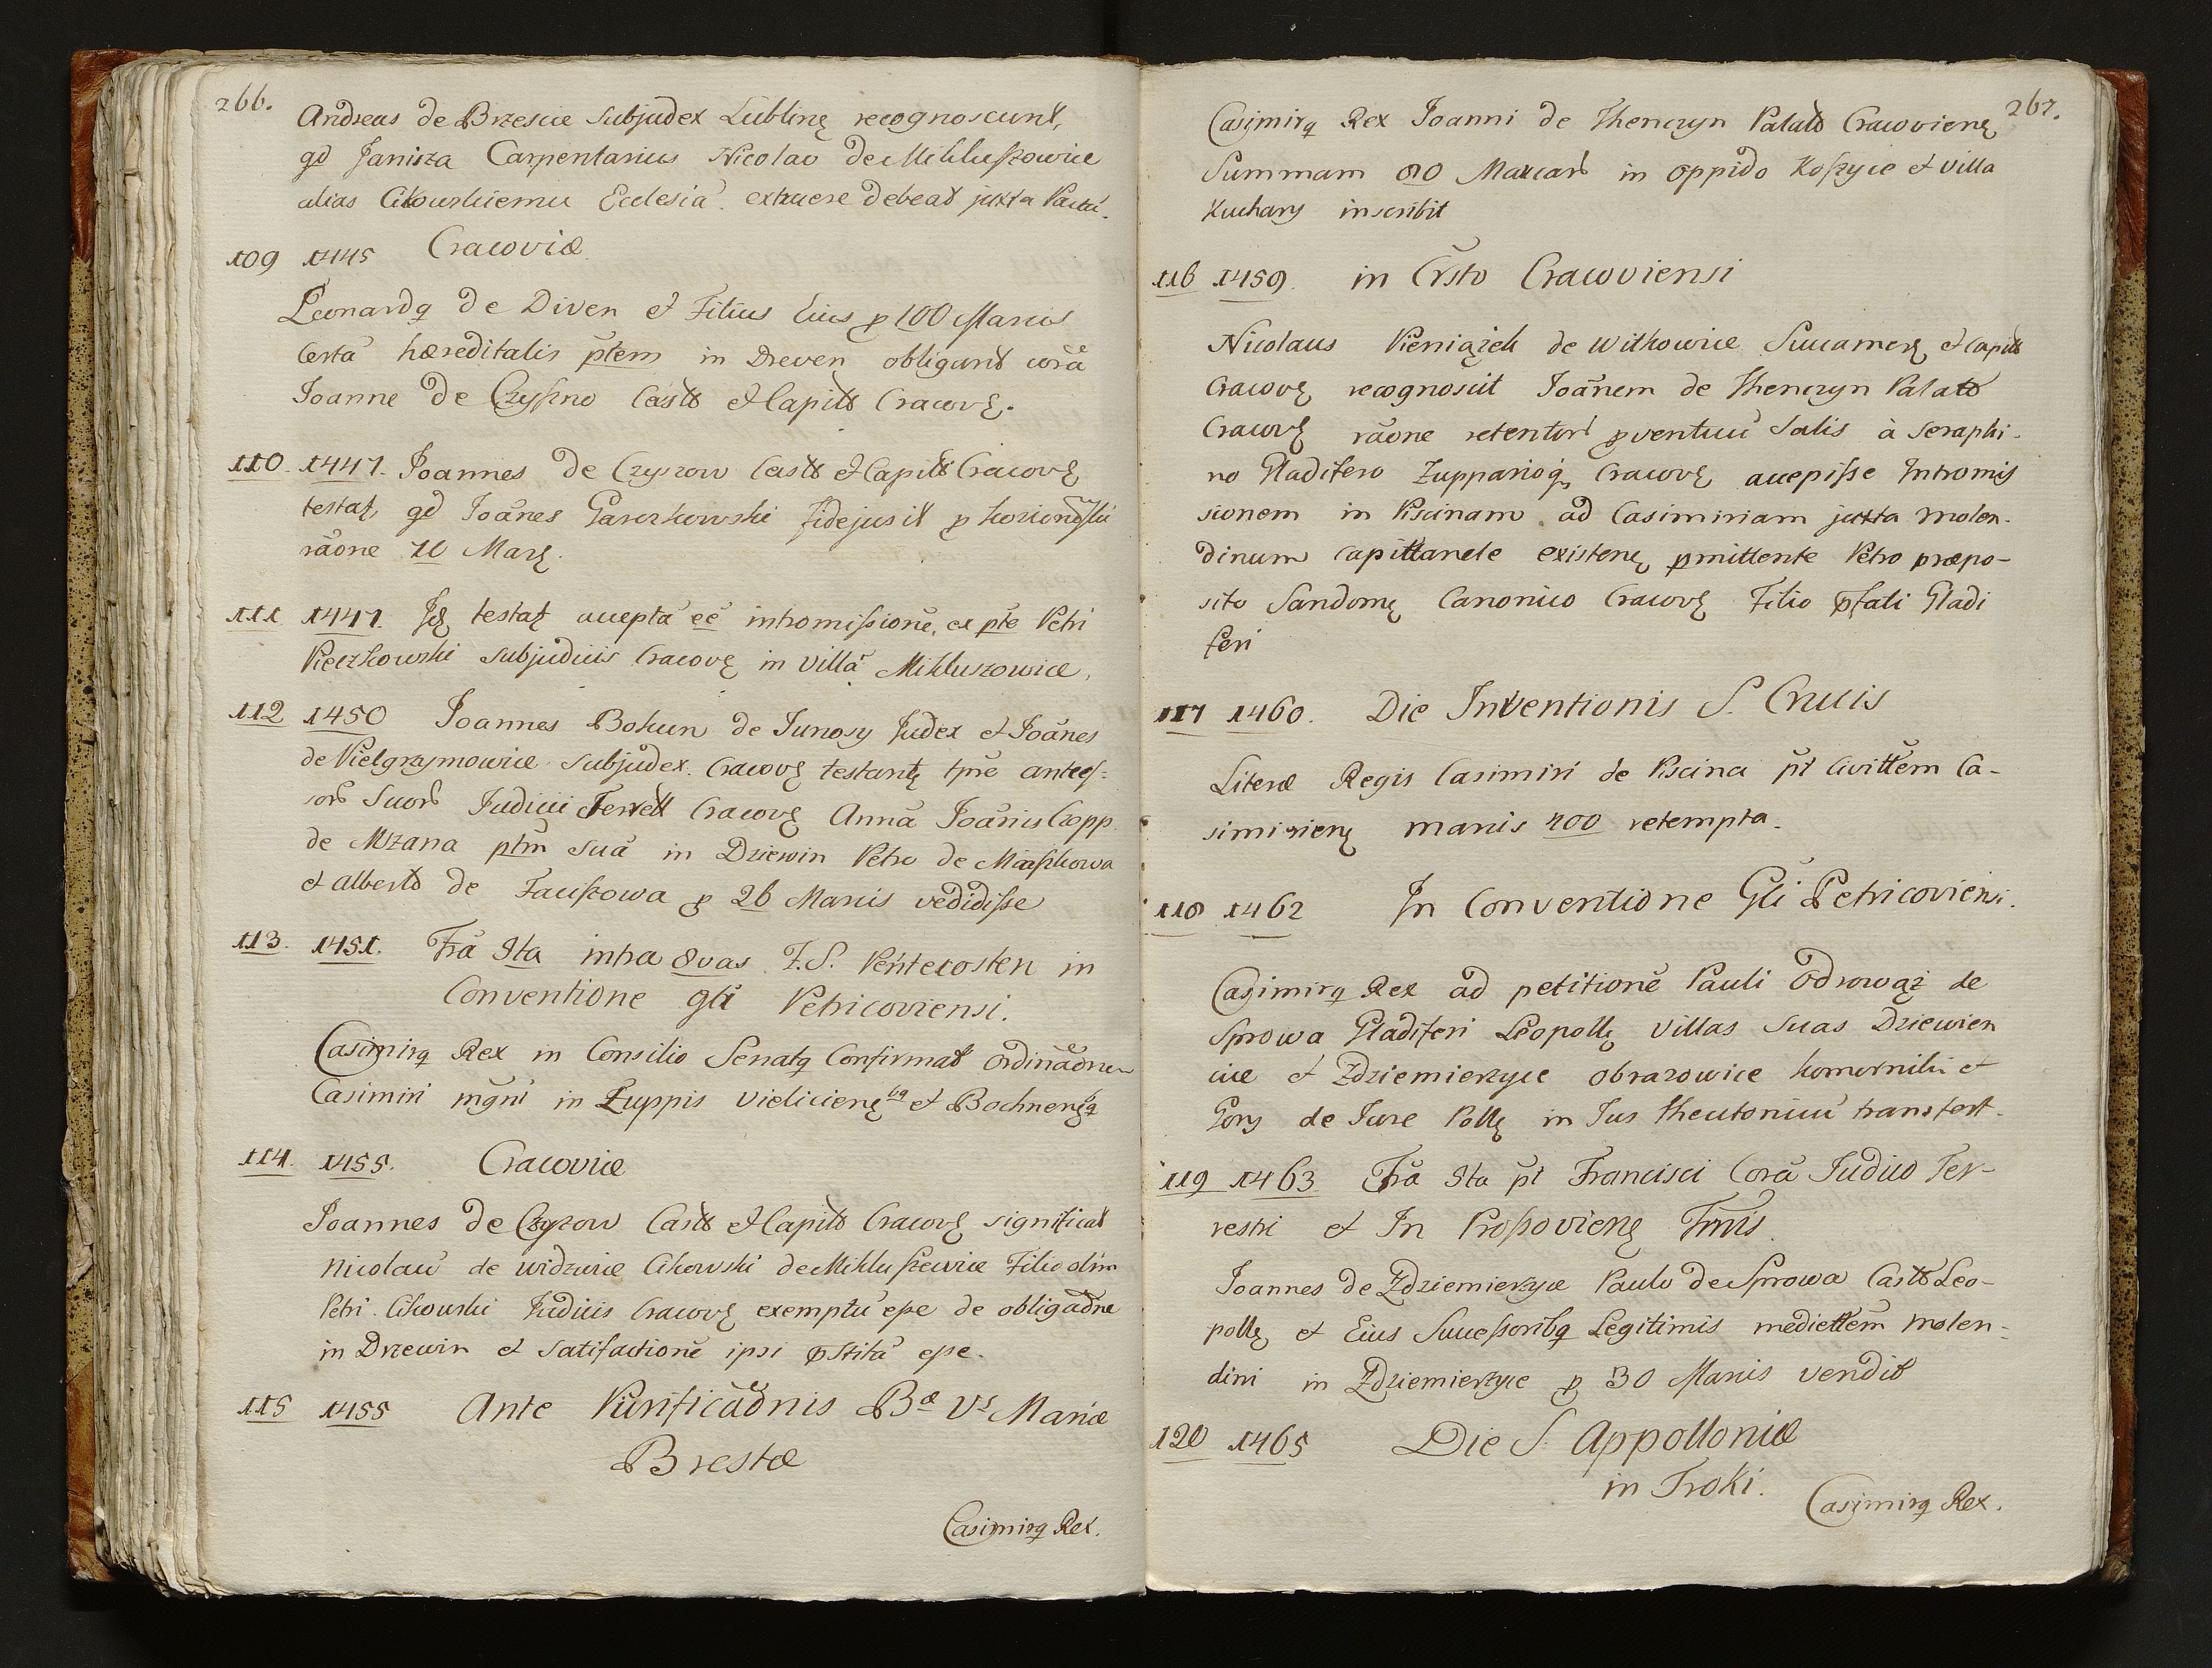 266.
Andreas de Brzescie Subjudex Lubline recognoscunt,
qd Janisza Carpentarius Nicolao de Mikluszowice
alias Cikowskiemu Ecclesiā extruere debeat juxta Pactū.
109 1445 Cracoviæ
Leonardq de Diven et Filius Eius p 100 Marcis
Certā hæreditatis ptem in Dreven obligant corā
Joanne de Czyszno Castto et Capitto Cracovę.
110. 1447. Joannes de Czyzow Castts et Capitts Cracovę
testat, qd Joānes Garczkowski fidejusit p
rāone 10 Marę.
111 1447. Id testat acceptā eē intromissionē, ex pte Petri
Pieczkowski Subjudicis Cracovę in villā Mikluszowice,
112 1450 Joannes Bohun de Junosy Judex et Joānes
de Pielgrzymowice Subjudex Cracovę testantę tpre antees=
sorb Suorb Judicii Terrell Cracovę Annā Joānis Czopp
de Mszana ptm suā in Dziewin Petro de Miaszkowa
et Alberto de Fauszowa p 26 Marcis vedidisse
113. 1451. Frā 5ta intra 8vas F. S. Pentecosten in
Conventione glī Petricoviensi.
Casimirq Rex in Consilio Senatq Confirmat Ordināone
Casimiri māgni in Zuppis Vielicienębq et Bochnenębq
114. 1455. Cracoviæ
Joannes de Czyzow Castts et Capitts Cracovę significat
Nicolaū de widzwice Cikowski de Mikluszewice Filio olim
Petri Cikowski Judicis Cracovę exemptū esse de obligaōne
in Drewin et Satifactionē ipsi pstitā esse.
115 1455 Ante Purificāonis Bæ Vs Mariæ
Brestæ
Casimirq Rex.
267.
Casimirq Rex Joanni de Thenczyn Palato Cracovienę
Summam 80 Marcarb in oppido Koszyce et villa
Kuchary inscribit
116 1459. in Crsto Cracoviensi
Nicolaus Pieniążek de Witkowice Succamerę et Capitts
Cracovę recognoscit Joānem de Thenczyn Palato
Cracovę rāone retentorb pventuū Salis à Seraphi-
no Gladifero Zupparioq Cracovę accepisse Intromis
sionem in Piscinam ad Casimiriam juxta molen-
dinum Capittanele existenę pmittente Petro præpo-
sito Sandomę Canonico Cracovę Filio pfati Gladi
feri
117 1460. Die Inventionis S. Crucis
Literæ Regis Casimiri de Piscina pt Civittēm Ca-
simirienę marcis 400 retempta.
118 1462 In Conventione Glī Petricoviensi.
Casimirq Rex ad petitionē Pauli Odrowąż de
Sprowa Gladiferi Leopollę villas suas Dziewien
cice et Zdziemierzyce Obrazowice Komorniki et
Gory de Jure Pollę in Jus theutonicū transfert.
119 1463 Frā 5ta pt Francisci Corā Judicio Ter-
restri et In Proszovienę Tmis.
Joannes de Zdziemierzyce Paulo de Sprowa Castto Leo-
pollę et Eius Successoribq Legitimis mediettēm molen-
dini in Zdziemierzyce p 30 Marcis vendit
120 1465 Die S. Appolloniæ
in Troki.
Casimirq Rex.